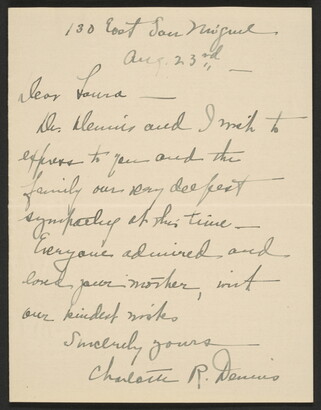 130 East San Miguel
Aug. 23rd —
Dear Laura —
Dr. Dennis and I wish to
express to you and the
family our very deepest
sympathy at this time —
Everyone admired and
loved your mother, with
our kindest wishes
Sincerely yours —
Charlotte R. Dennis